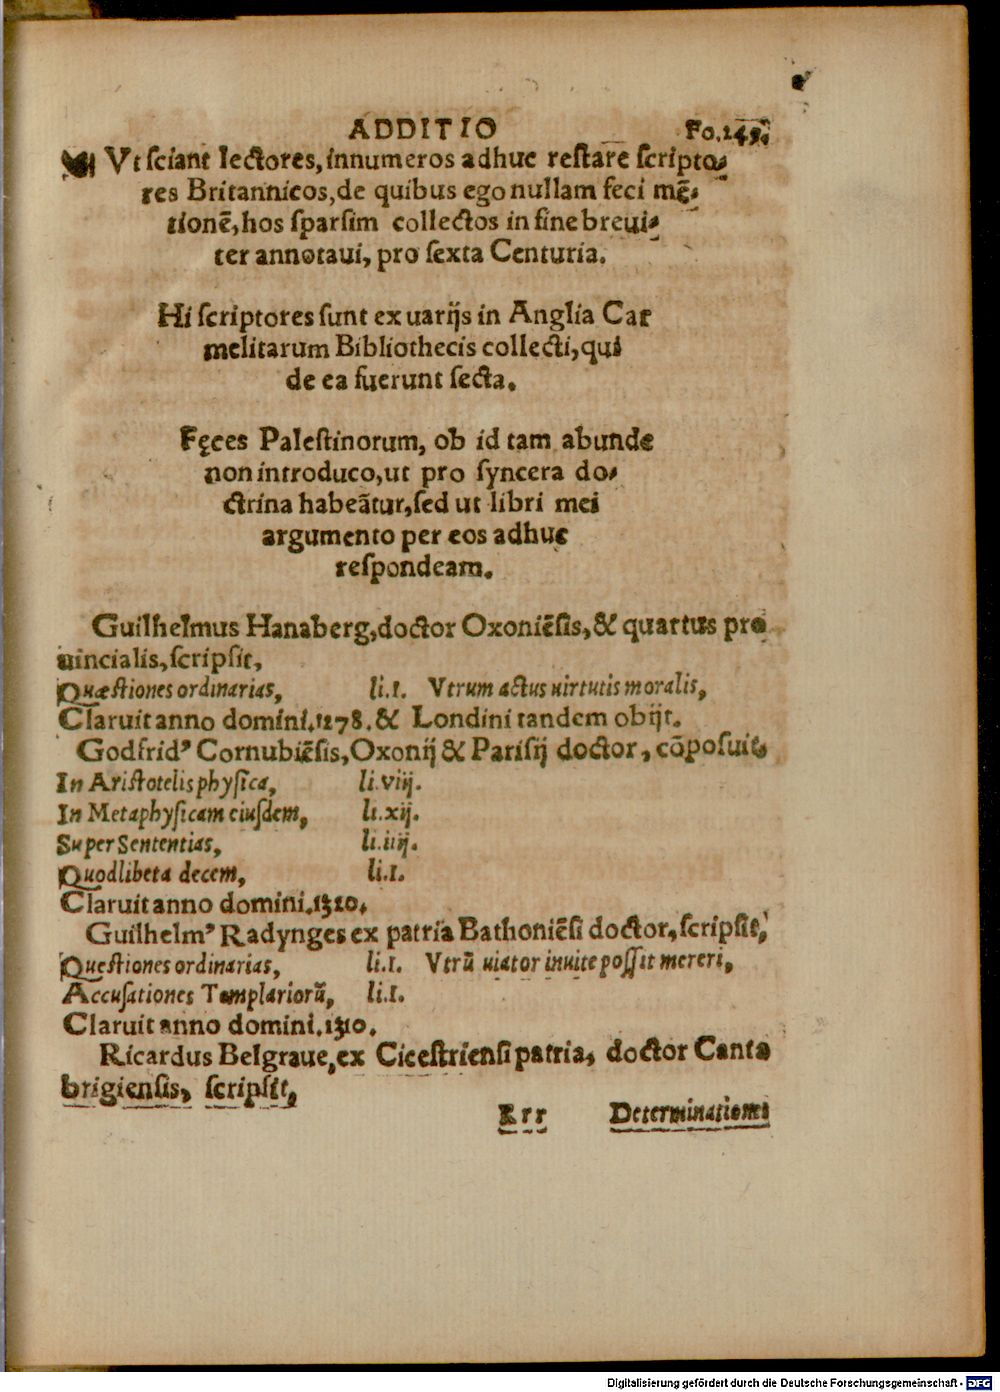 ADDITIO Fo.245.
Vt sciant lectores, innumeros adhuc restare scripto-
res Britannicos, de quibus ego nullam feci mē-
tionē, hos sparsim collectos in fine breui-
ter annotaui, pro sexta Centuria.
Hi scriptores sunt ex uarijs in Anglia Car
melitarum Bibliothecis collecti, qui
de ea fuerunt secta.
Fęces Palestinorum, ob id tam abunde
non introduco, ut pro syncera do-
ctrina habeātur, sed ut libri mei
argumento per eos adhuc
respondeam.
Guilhelmus Hanaberg, doctor Oxoniēsis, & quartus pro
uincialis, scripsit,
Quæstiones ordinarias, li.I. Vtrum actus uirtutis moralis,
Claruit anno domini.1278. & Londini tandem obijt.
Godfridꝰ Cornubiēsis, Oxonij & Parisij doctor, cōposuit,
In Aristotelis physica, li.viij.
In Metaphysicam eiusdem, li.xij.
Super Sententias, li.iiij.
Quodlibeta decem, li.I.
Claruit anno domini.1310.
Guilhelmꝰ Radynges ex patria Bathoniēsi doctor, scripsit,
Questiones ordinarias, li.I. Vtrū uiator inuite possit mereri,
Accusationes Templariorū, li.I.
Claruit anno domini.1310.
Ricardus Belgraue, ex Cicestriensi patria, doctor Canta
brigiensis, scripsit,
Rrr Determinationes
Digitalisierung gefördert durch die Deutsche Forschungsgemeinschaft - DFG